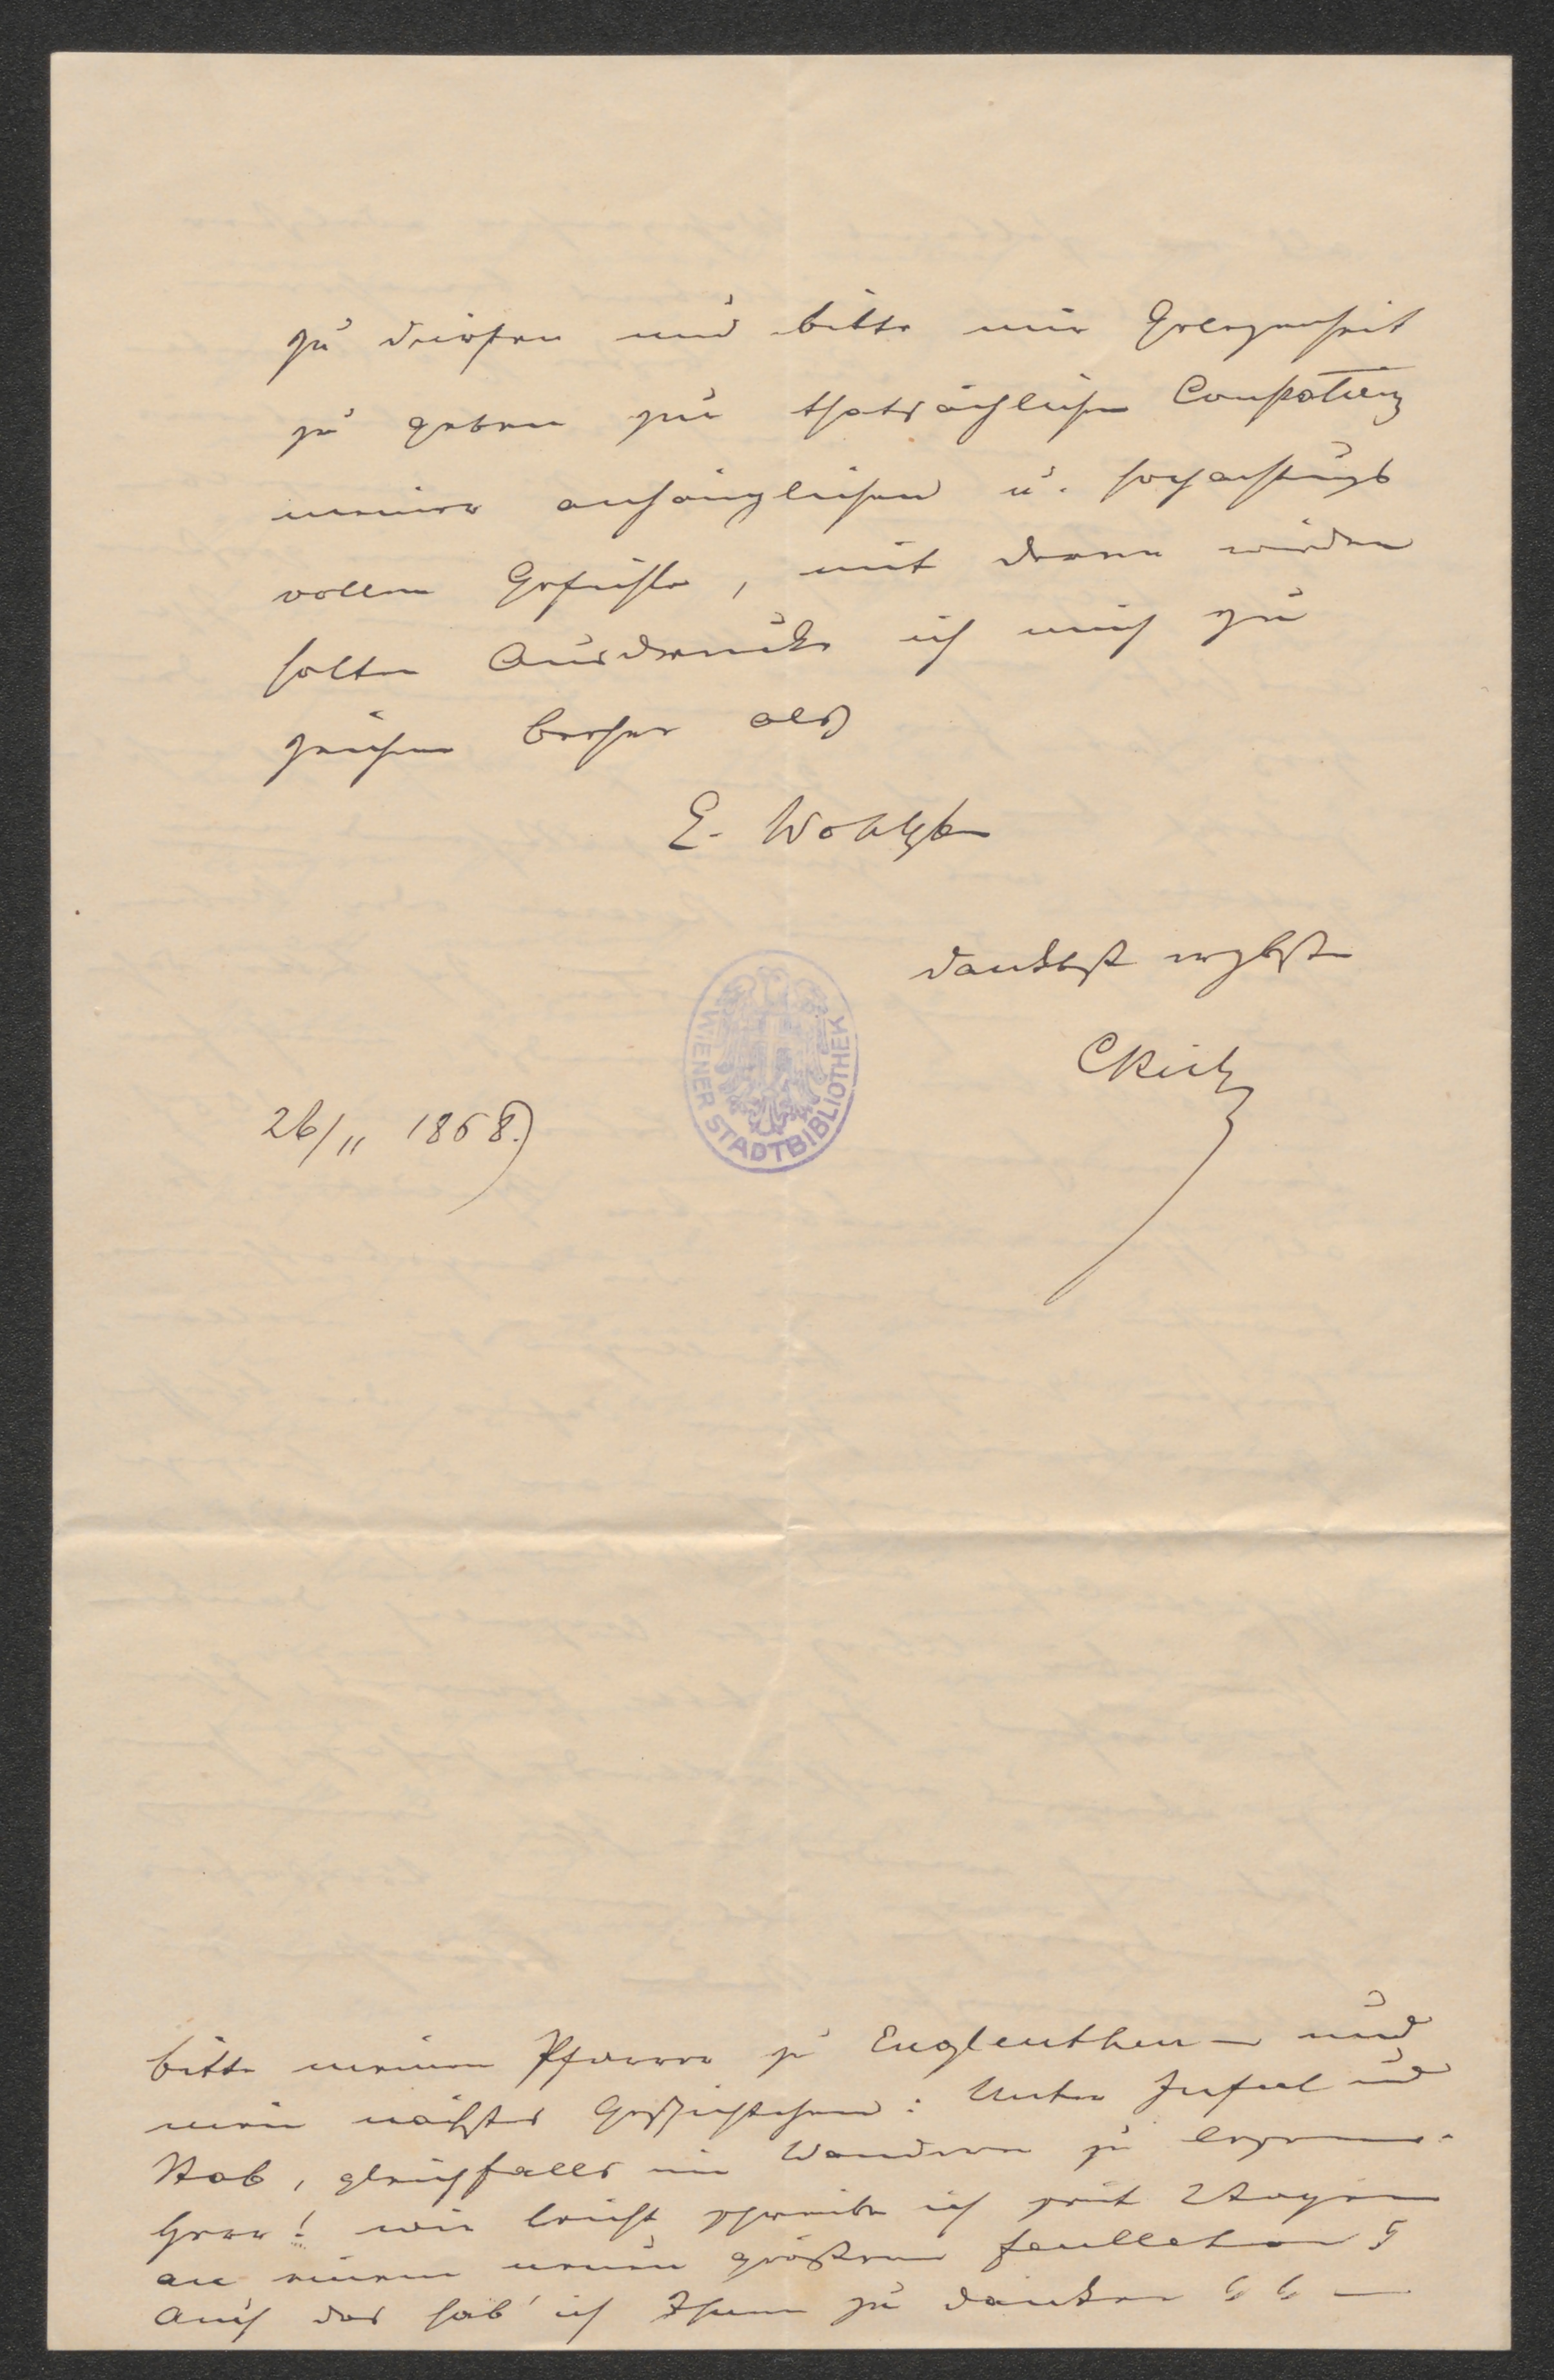 zu dürfen und bitte mir Gelegenheit
zu geben zur thatsächlichen
meiner anhänglichen u. hochachtungs
vollen Gefühle, mit deren wieder
holten Ausdrucke ich mich zu
zeichnen beehre als
E. Wohlgb
dankbst ergbst
26/11 1868.
WIENER STADTBIBLIOTHEK
bitte meinen Pfarrer zu Englenthen – und
mein nächstes Geschichtchen: Unter Inful und
Stab, gleichfalls im Wanderer zu
Herr! wie leicht schreibe ich seit 2 Tagen
an einem neuen größeren feulleton
auch das hab' ich Ihnen zu danken